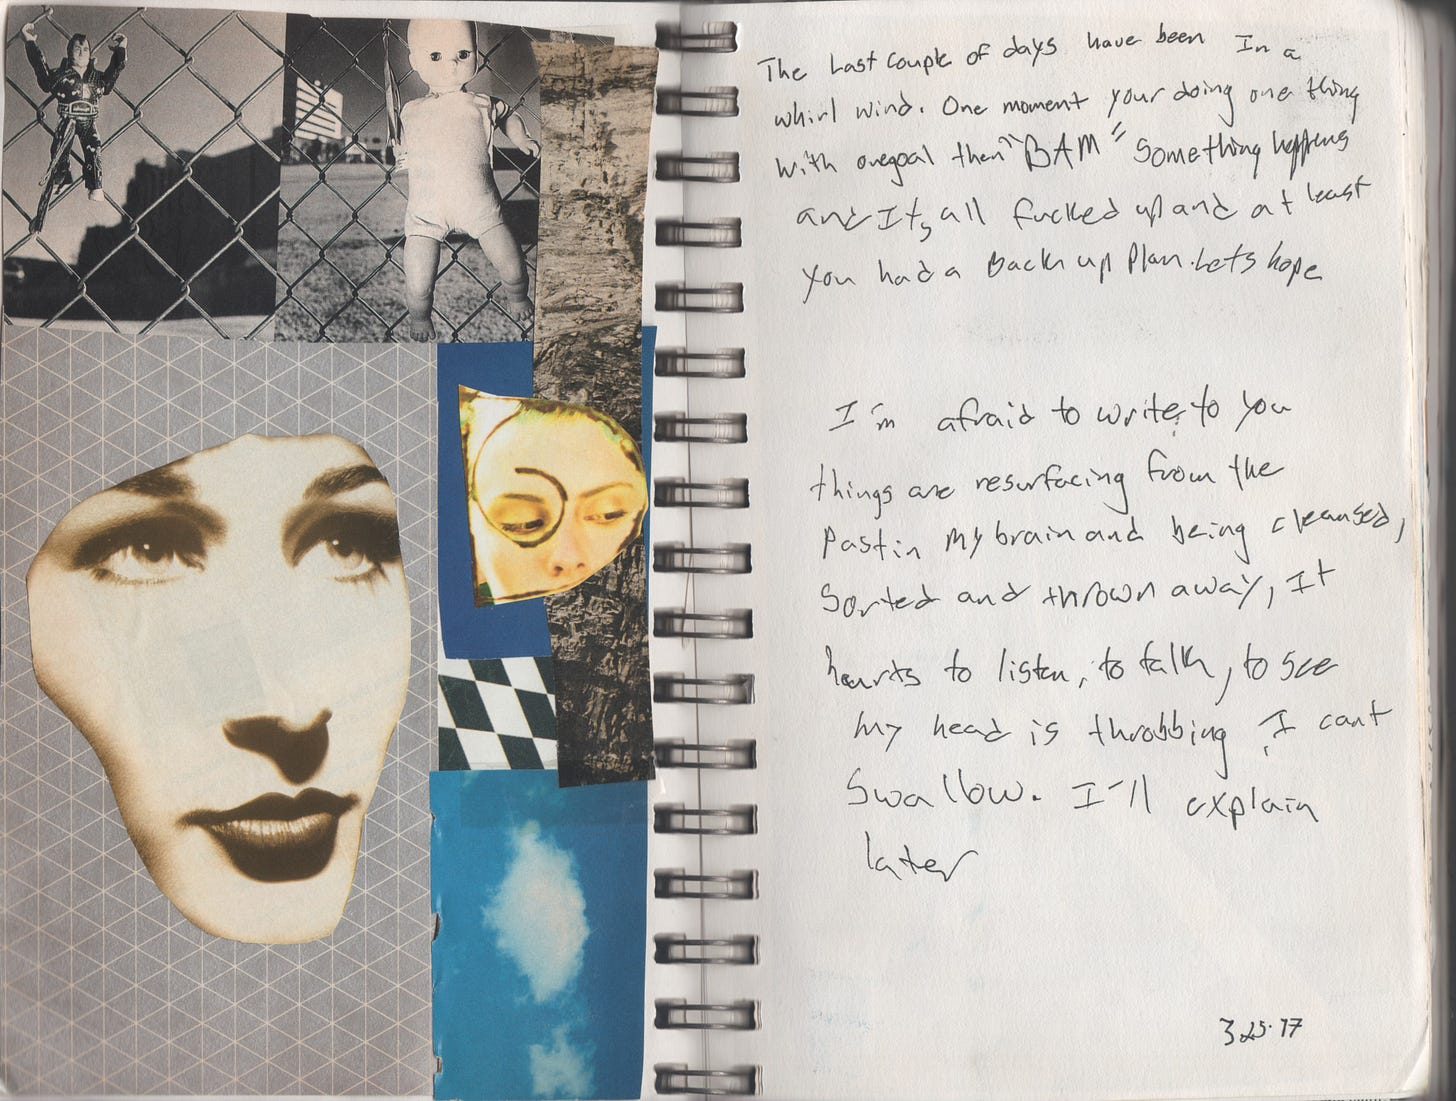 The Last couple of days have been In a
whirl wind. One moment your doing one thing
with onegoal then "BAM" Something happens
and It,s all fucked up and at least
you had a Back up Plan. Lets hope
I'm afraid to write to you
things are resurfacing from the
Past in my brain and being cleansed,
Sorted and thrown away, It
hearts to listen, to talk, to see
my head is throbbing, I cant
Swallow. I'll explain
later
3.25.17